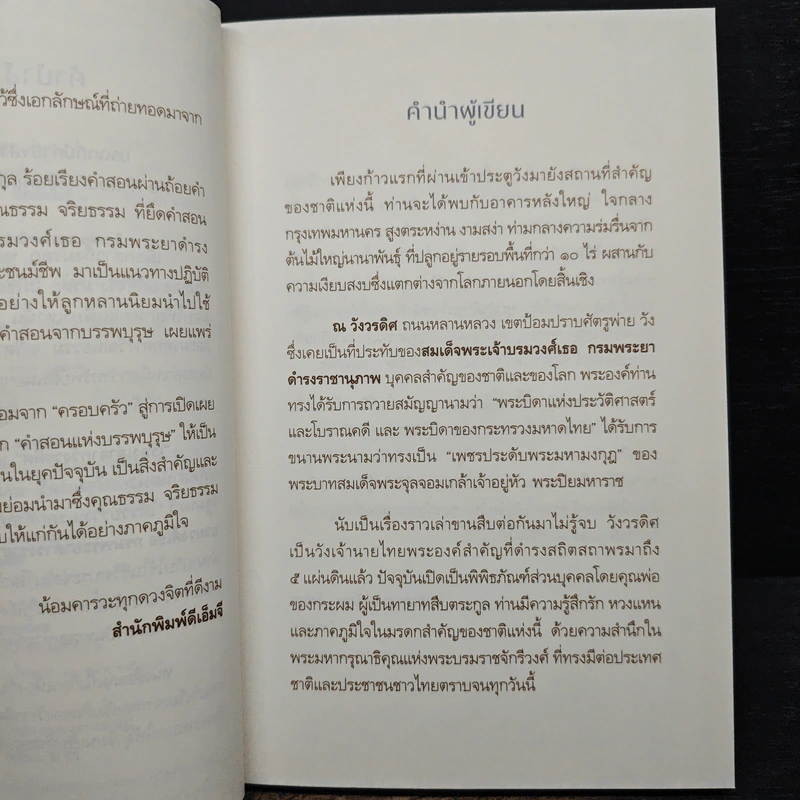 ว้ซึ่งเอกลักษณ์ที่ถ่ายทอดมาจาก
กุล ร้อยเรียงคำสอนผ่านถ้อยคำ
ณธรรม จริยธรรม ที่ยึดคำสอน
รมวงศ์เธอ กรมพระยาดำรง
ะชนม์ชีพ มาเป็นแนวทางปฏิบัติ
อย่างให้ลูกหลานนิยมนำไปใช้
คำสอนจากบรรพบุรุษ เผยแพร่
อมจาก “ครอบครัว” สู่การเปิดเผย
ก “คำสอนแห่งบรรพบุรุษ” ให้เป็น
นในยุคปัจจุบัน เป็นสิ่งสำคัญและ
งย่อมนำมาซึ่งคุณธรรม จริยธรรม
บให้แก่กันได้อย่างภาคภูมิใจ
น้อมคารวะทุกดวงจิตที่ดีงาม
สำนักพิมพ์ดีเอ็มจี
คำนำผู้เขียน
เพียงก้าวแรกที่ผ่านเข้าประตูวังมายังสถานที่สำคัญ
ของชาติแห่งนี้ ท่านจะได้พบกับอาคารหลังใหญ่ ใจกลาง
กรุงเทพมหานคร สูงตระหง่าน งามสง่า ท่ามกลางความร่มรื่นจาก
ต้นไม้ใหญ่นานาพันธุ์ ที่ปลูกอยู่รายรอบพื้นที่กว่า ๑๐ ไร่ ผสานกับ
ความเงียบสงบซึ่งแตกต่างจากโลกภายนอกโดยสิ้นเชิง
ณ วังวรดิศ ถนนหลานหลวง เขตป้อมปราบศัตรูพ่าย วัง
ซึ่งเคยเป็นที่ประทับของสมเด็จพระเจ้าบรมวงศ์เธอ กรมพระยา
ดำรงราชานุภาพ บุคคลสำคัญของชาติและของโลก พระองค์ท่าน
ทรงได้รับการถวายสมัญญานามว่า “พระบิดาแห่งประวัติศาสตร์
และโบราณคดี และ พระบิดาของกระทรวงมหาดไทย” ได้รับการ
ขนานพระนามว่าทรงเป็น “เพชรประดับพระมหามงกุฎ” ของ
พระบาทสมเด็จพระจุลจอมเกล้าเจ้าอยู่หัว พระปิยมหาราช
นับเป็นเรื่องราวเล่าขานสืบต่อกันมาไม่รู้จบ วังวรดิศ
เป็นวังเจ้านายไทยพระองค์สำคัญที่ดำรงสถิตสถาพรมาถึง
๕ แผ่นดินแล้ว ปัจจุบันเปิดเป็นพิพิธภัณฑ์ส่วนบุคคลโดยคุณพ่อ
ของกระผม ผู้เป็นทายาทสืบตระกูล ท่านมีความรู้สึกรัก หวงแหน
และภาคภูมิใจในมรดกสำคัญของชาติแห่งนี้ ด้วยความสำนึกใน
พระมหากรุณาธิคุณแห่งพระบรมราชจักรีวงศ์ ที่ทรงมีต่อประเทศ
ชาติและประชาชนชาวไทยตราบจนทุกวันนี้